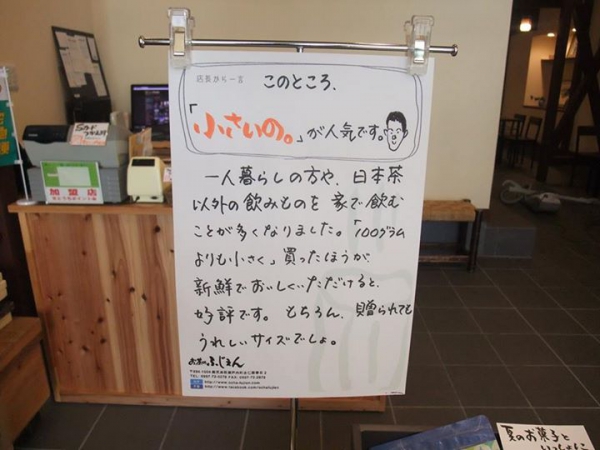 店長から一言
このところ、
「小さいの。」が人気です。
一人暮らしの方や、日本茶
以外の飲みものを家で飲む
ことが多くなりました。「100グラム
よりも小さく」買ったほうが
新鮮でおいしくいただけると、
好評です。もちろん、贈られても
うれしいサイズでしょ。
お茶のふじゑん
加盟店
夏のお菓子と